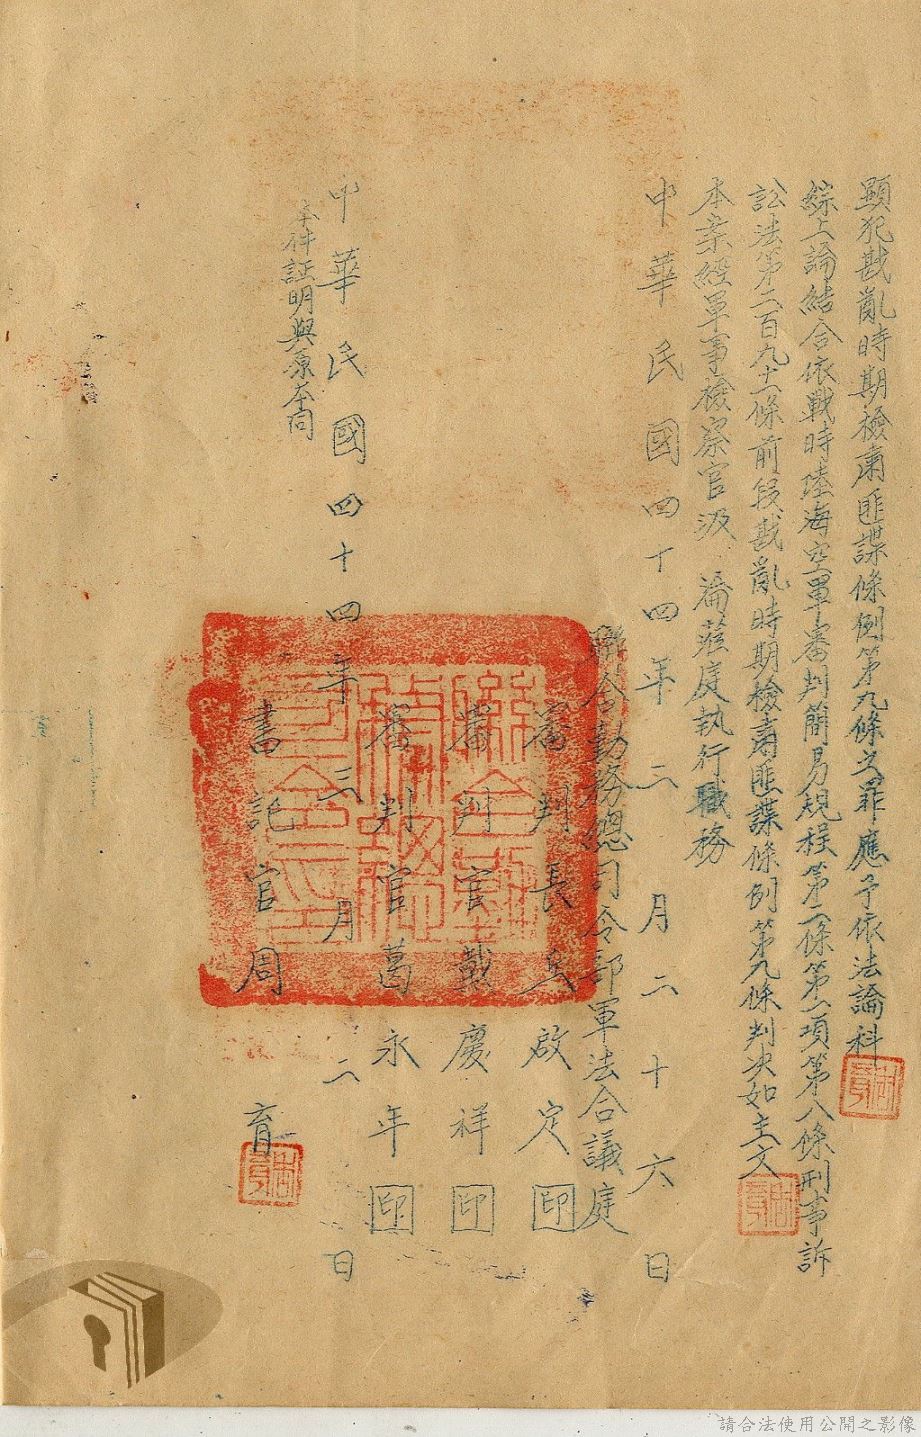 顯犯戡亂時期檢肅匪諜條例第九條之罪應予依法論科
綜上論結合依戰時陸海空軍審判簡易規程第二條第二項第八條刑事訴
訟法第二百九十一條前段戡亂時期檢肅匪諜條例第九條判決如主文
本案經軍事檢察官汲 蒞庭執行職務
中華民國四十四年二月二十六日
聯合勤務總司令部軍法合議庭
審判長 啟定印
審判官戴慶祥印
審判官葛永年印
中華民國四十四年三月二日
本件証明與原本同
書記官周育
請合法使用公開之影像